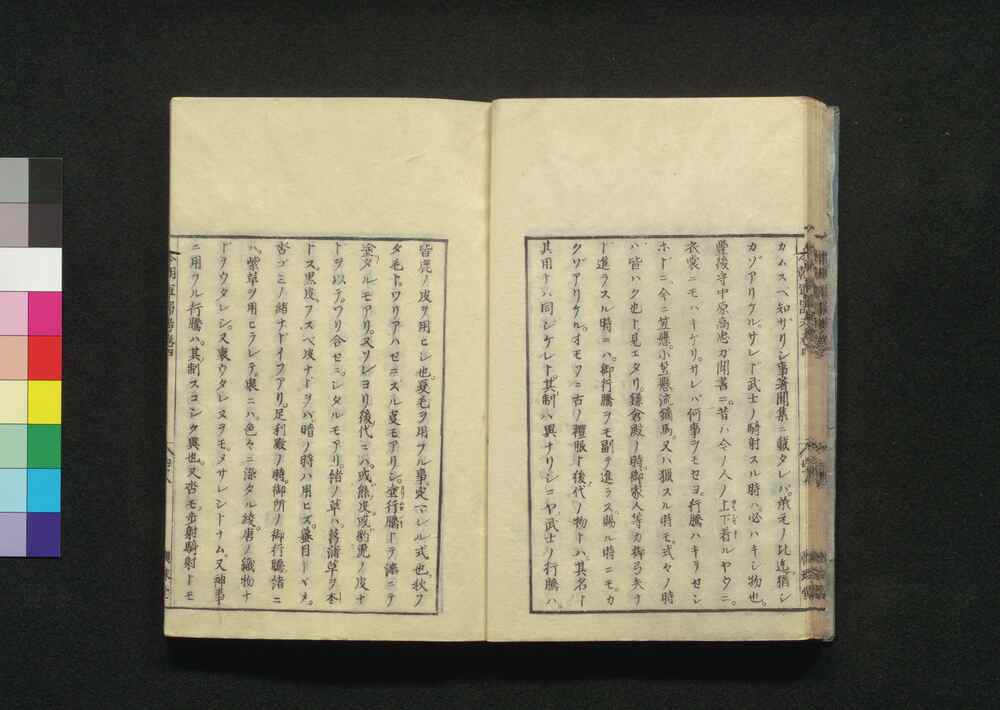 カムスベ知ザリシ事著聞集ニ載タレバ。承元ノ比迄猶シ
カゾアリケル。サレド武士ノ騎射スル時ハ必ハキシ物也。
豊後守中原高忠カ聞書ニ。昔ハ今ノ人ノ上下着ルヤウニ。
衣裳ニモハキケリ。サレバ何事ヲモセヨ。行騰ハキリセン
ホドニ。今ニ笠懸。小笠懸。流鏑馬。又ハ猟スル時モ。式々ノ時
ハ皆ハク也ト見エタリ。鎌倉殿ノ時。御家人等カ御弓矢ナ
ド進ラスル時ニハ。御行騰ヲモ副テ進ラス。賜ル時ニモ。カ
クゾアリケル。オモフニ古ノ禮服ト後代ノ物トハ。其名ト
其用トハ同ジケレド。其制ハ異ナリシニヤ。武士ノ行騰ハ。
皆鹿ノ皮ヲ用ヒシ也。夏毛ヲ用フル事定マレル式也。秋フ
タ毛ト。ワリアハセニスル事モアリシ。壹行騰トテ漆ニテ
塗タルモアリ。又ソレヨリ後代ニハ。或熊皮。或豹虎ノ皮ナ
ドヲ以テ。ワリ合セニシタルモアリ。緒ノ草ハ菖蒲草ヲ本
トス。黒皮。フスベ皮ナドヲバ暗ノ時ハ用ヒズ。盛目ドヾメ。
杏ゴミノ緒ナドイフアリ。足利殿ノ時。御所ノ御行騰諸ニ
ハ。紫草ヲ用ヒラレテ。裏ニハ色々ニ染タル綾。唐ノ織物ナ
ドヲウタレシ。又裏ウタレヌヲモ。メサレシトナム。又神事
ニ用フル行騰ハ。其制スコシク異也。又沓モ。歩射騎射トモ